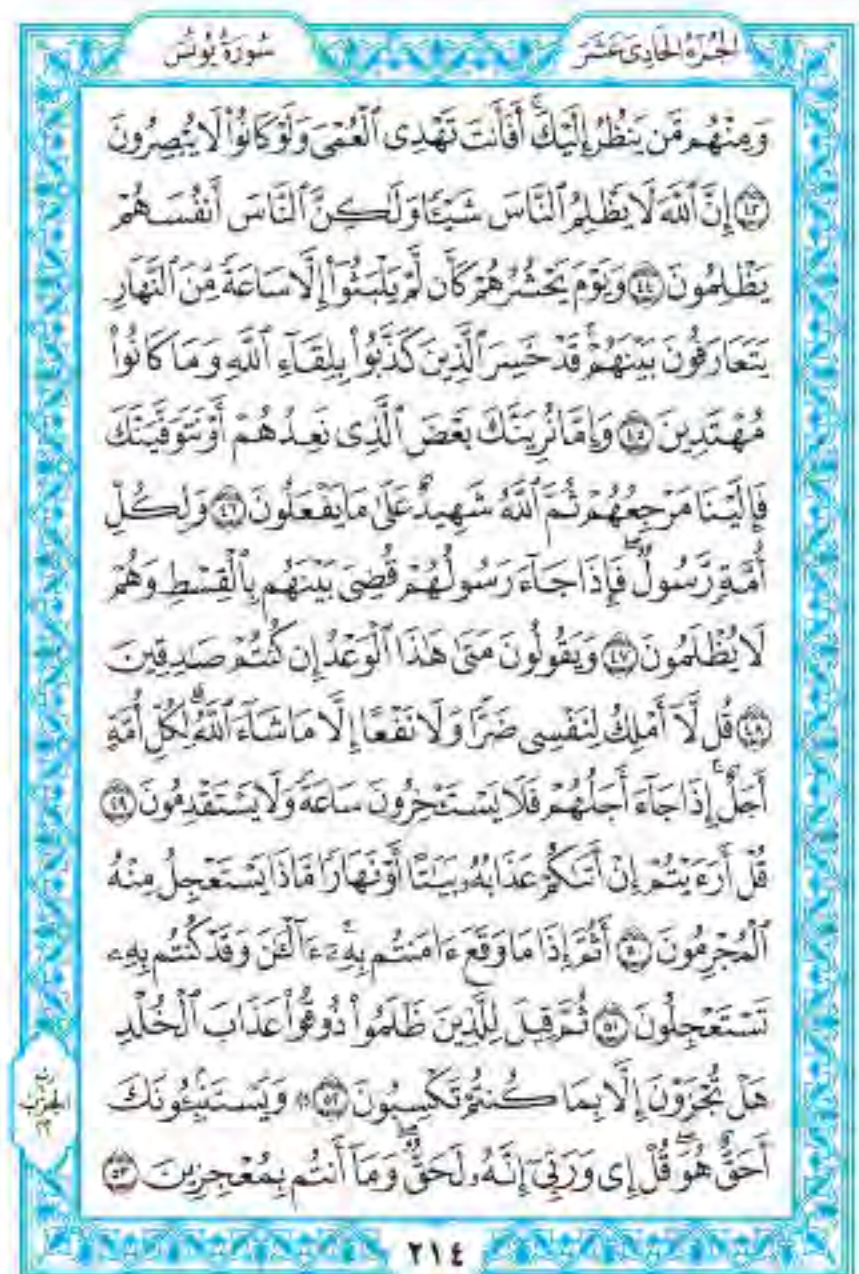 سُورَةُ يُونُسَ
الجُزْءُ الحَادِي عَشَرَ
وَمِنْهُم مَّن يَنظُرُ إِلَيْكَۚ أَفَأَنتَ تَهْدِى ٱلْعُمْىَ وَلَوْ كَانُوا۟ لَا يُبْصِرُونَ
٤٣ إِنَّ ٱللَّهَ لَا يَظْلِمُ ٱلنَّاسَ شَيْـًٔا وَلَـٰكِنَّ ٱلنَّاسَ أَنفُسَهُمْ
يَظْلِمُونَ ٤٤ وَيَوْمَ يَحْشُرُهُمْ كَأَن لَّمْ يَلْبَثُوٓا۟ إِلَّا سَاعَةً مِّنَ ٱلنَّهَارِ
يَتَعَارَفُونَ بَيْنَهُمْۚ قَدْ خَسِرَ ٱلَّذِينَ كَذَّبُوا۟ بِلِقَآءِ ٱللَّهِ وَمَا كَانُوا۟
مُهْتَدِينَ ٤٥ وَإِمَّا نُرِيَنَّكَ بَعْضَ ٱلَّذِى نَعِدُهُمْ أَوْ نَتَوَفَّيَنَّكَ
فَإِلَيْنَا مَرْجِعُهُمْ ثُمَّ ٱللَّهُ شَهِيدٌ عَلَىٰ مَا يَفْعَلُونَ ٤٦ وَلِكُلِّ
أُمَّةٍ رَّسُولٌۖ فَإِذَا جَآءَ رَسُولُهُمْ قُضِىَ بَيْنَهُم بِٱلْقِسْطِ وَهُمْ
لَا يُظْلَمُونَ ٤٧ وَيَقُولُونَ مَتَىٰ هَـٰذَا ٱلْوَعْدُ إِن كُنتُمْ صَـٰدِقِينَ
٤٨ قُل لَّآ أَمْلِكُ لِنَفْسِى ضَرًّا وَلَا نَفْعًا إِلَّا مَا شَآءَ ٱللَّهُۗ لِكُلِّ أُمَّةٍ
أَجَلٌۚ إِذَا جَآءَ أَجَلُهُمْ فَلَا يَسْتَـْٔخِرُونَ سَاعَةً وَلَا يَسْتَقْدِمُونَ ٤٩
قُلْ أَرَءَيْتُمْ إِنْ أَتَىٰكُمْ عَذَابُهُۥ بَيَـٰتًا أَوْ نَهَارًا مَّاذَا يَسْتَعْجِلُ مِنْهُ
ٱلْمُجْرِمُونَ ٥٠ أَثُمَّ إِذَا مَا وَقَعَ ءَامَنتُم بِهِۦٓۚ ءَآلْـَٔـٰنَ وَقَدْ كُنتُم بِهِۦ
تَسْتَعْجِلُونَ ٥١ ثُمَّ قِيلَ لِلَّذِينَ ظَلَمُوا۟ ذُوقُوا۟ عَذَابَ ٱلْخُلْدِ
هَلْ تُجْزَوْنَ إِلَّا بِمَا كُنتُمْ تَكْسِبُونَ ٥٢ ۞ وَيَسْتَنۢبِـُٔونَكَ
أَحَقٌّ هُوَۖ قُلْ إِى وَرَبِّىٓ إِنَّهُۥ لَحَقٌّۖ وَمَآ أَنتُم بِمُعْجِزِينَ ٥٣
٢١٤
ربع
الحزب